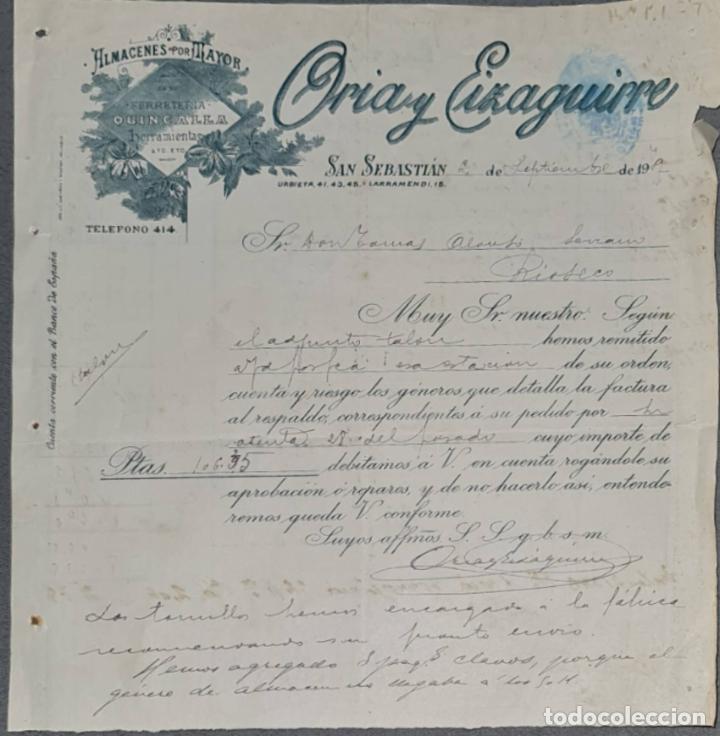 ALMACENES POR MAYOR
DE
FERRETERIA
QUINCALLA
Herramientas
ETC. ETC.
TELEFONO 414
Oria y Eizaguirre
SAN SEBASTIÁN 2 de Septiembre de 190
URBIETA, 41, 43, 45. LARRAMENDI, 15.
Cuenta corriente con el Banco De España
talon
Sr. Don Tomas Alonso Serrano
Rioseco
Muy Sr. nuestro: Según
el adjunto talon hemos remitido
á esa estacion de su orden,
cuenta y riesgo los géneros que detalla la factura
al respaldo, correspondientes á su pedido por su
atenta 28 del pasado cuyo importe de
Ptas. 106.35 debitamos á V. en cuenta rogándole su
aprobación ó reparos, y de no hacerlo así, entende-
remos queda V. conforme.
Suyos affmos S. S. q. b. s. m.
Oria y Eizaguirre
Los tornillos hemos encargado á la fábrica
recomendando su pronto envio.
Hemos agregado 8 paqs clavos, porque el
género de almacen no llegaba á los 50 K.
todocoleccion.net